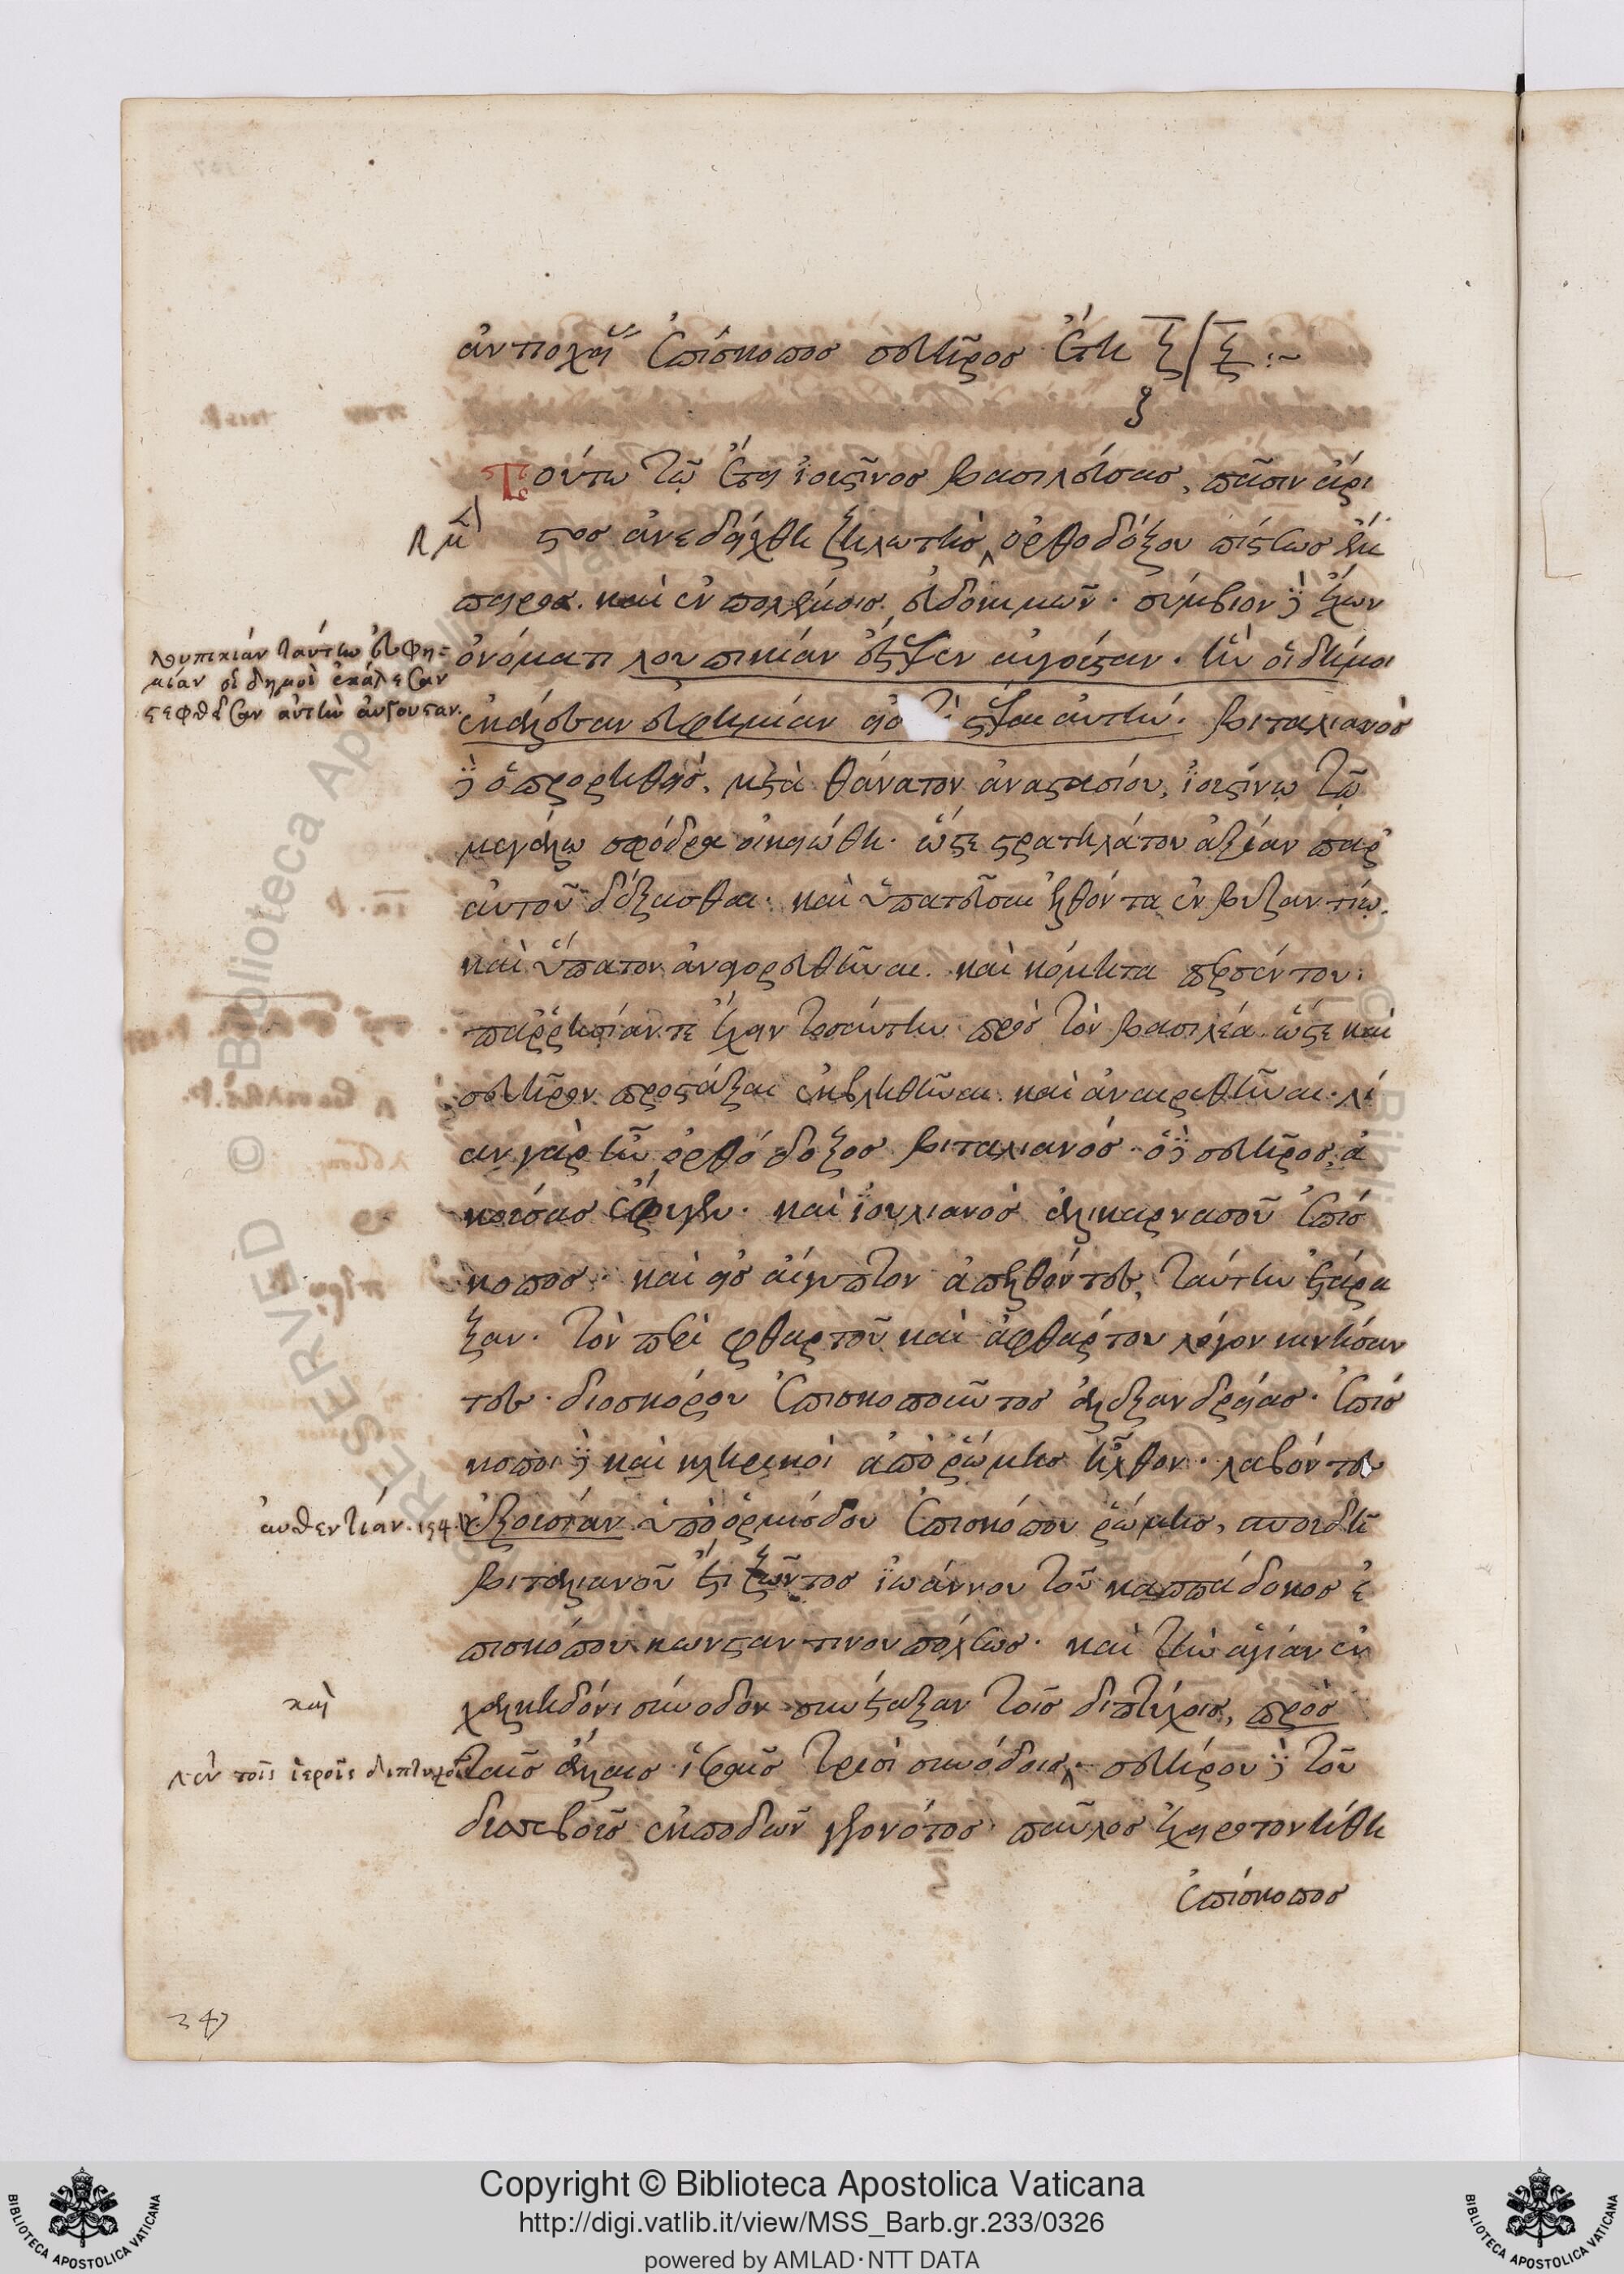 ἀντιοχείας ἐπίσκοπος σευῆρος ἔτη ϛ ϛ :~
Τούτω τῶ ἔτει ἰουστῖνος βασιλεύσας, πᾶσιν ἄρι
στος ἀνεδείχθη ζηλωτὴς ὀρθοδόξου πίστεως ἔμ
πειρος. καὶ ἐν πολέμοις εὐδοκιμῶν. σύμβιον δὲ ἔχων
ὀνόματι λουπικίαν ἔστεψεν αὐγούσταν. ἣν οἱ δῆμοι
ἐκάλεσαν εὐφημίαν εἰς τὸ στέψαι αὐτήν. βιταλιανὸς
δὲ ὁ προρηθεὶς, μετὰ θάνατον ἀναστασίου, ἰουστίνω τῶ
μεγάλω σφόδρα ὠκειώθη. ὥστε στρατηλάτου ἀξίαν παρ'
αὐτοῦ δέξασθαι. καὶ ὑπατεῦσαι ἐλθόντα ἐν βυζαντίω.
καὶ ὕπατον ἀναγορευθῆναι. καὶ κόμητα πραισέντου.
παρρησίαν τε ἔχειν τοσαύτην πρὸς τὸν βασιλέα ὥστε καὶ
σευῆρον προστάξαι ἐκβληθῆναι. καὶ ἀναιρεθῆναι. λί
αν γὰρ ἦν ὀρθόδοξος βιταλιανός. ὁ δὲ σευῆρος, ἀ
κούσας ἔφυγεν. καὶ ἰουλιανὸς ἁλικαρνασοῦ ἐπίσ
κοπος. καὶ εἰς αἴγυπτον ἀπελθόντες, ταύτην ἐτάρα
ξαν. τὸν περὶ φθαρτοῦ καὶ ἀφθάρτου λόγον κινήσαν
τες. διοσκόρου ἐπισκοποῦντος ἀλεξανδρείας. ἐπίσ
κοποι δὲ καὶ κληρικοὶ ἀπὸ ῥώμης ἦλθον. λαβόντες
ἐξουσίαν ὑπὸ ὁρμίσδου ἐπισκόπου ῥώμης, σπουδῆ
βιταλιανοῦ ἔτι ζῶντος ἰωάννου τοῦ καππάδοκος ἐ
πισκόπου κωνσταντινουπόλεως. καὶ τὴν ἁγίαν ἐν
χαλκηδόνι σύνοδον συνέταξαν τοῖς διπτύχοις, πρὸς
ταῖς ἄλλαις ἱεραῖς τρισὶ συνόδοις. σευήρου δὲ τοῦ
δυσσεβοῦς ἐκποδῶν γεγονότος παῦλος ἐχειροτονήθη
ἐπίσκοπος
λουπικίαν ταύτην εὐφη=
μίαν οἱ δημοὶ ἐκάλεσαν
στεφθεῖσαν αὐτὴν αὐγουσταν.
αυθεντίαν. 194.
καὶ
ἐν τοῖς ἱεροῖς διπτύχοις
Copyright © Biblioteca Apostolica Vaticana
http://digi.vatlib.it/view/MSS_Barb.gr.233/0326
powered by AMLAD·NTT DATA
BIBLIOTECA APOSTOLICA VATICANA
BIBLIOTECA APOSTOLICA VATICANA